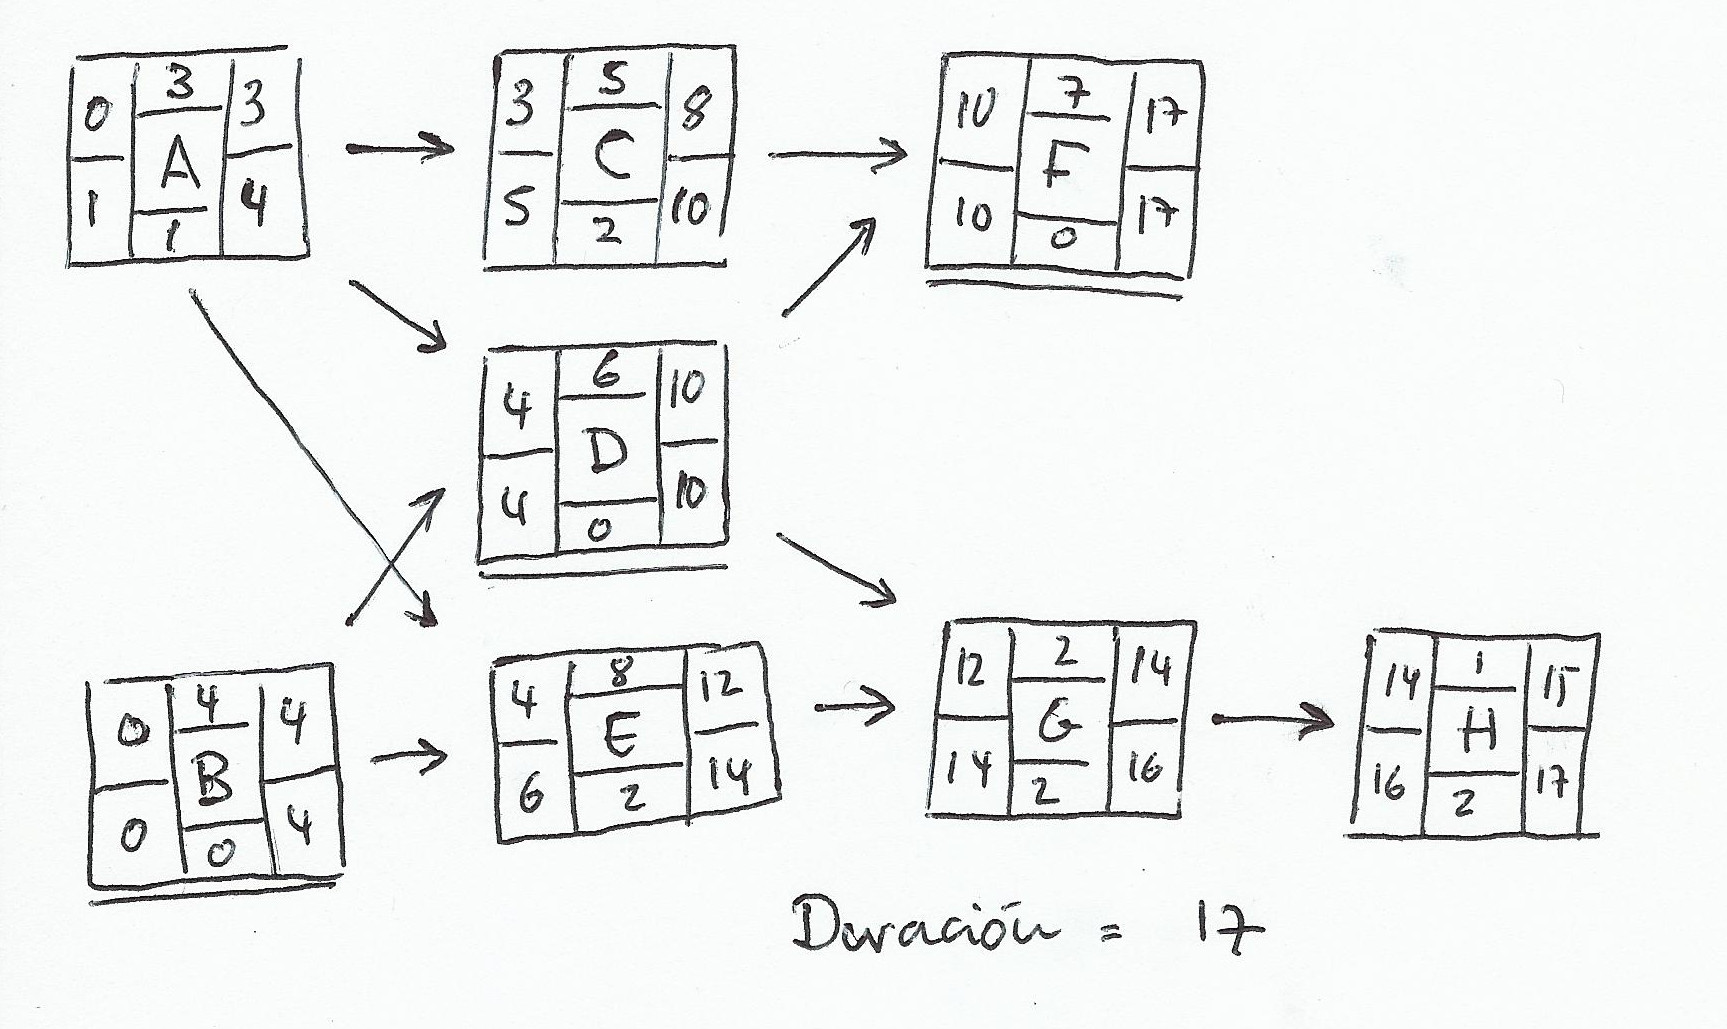 0 3 3
A
1 1 4
3 5 8
C
5 2 10
10 7 17
F
10 0 17
4 6 10
D
4 0 10
0 4 4
B
0 0 4
4 8 12
E
6 2 14
12 2 14
G
14 2 16
14 1 15
H
16 2 17
Duración = 17